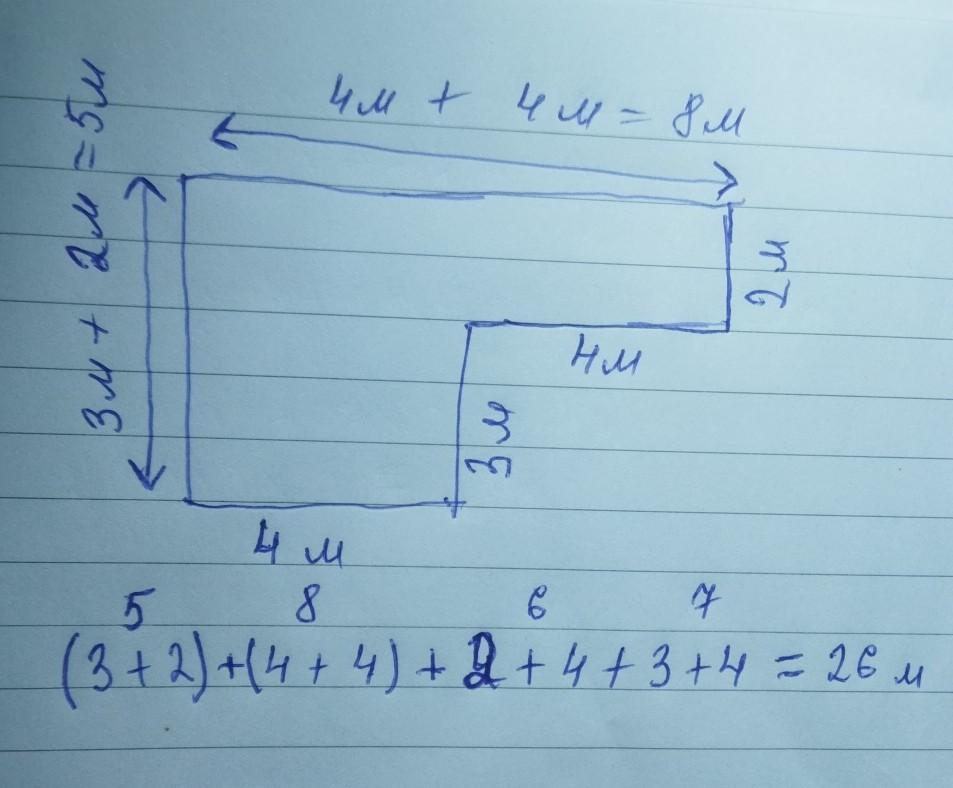 4м + 4м = 8м
3м + 2м = 5м
2м
4м
3м
4 м
5 8 6 7
(3 + 2) + (4 + 4) + 2 + 4 + 3 + 4 = 26 м